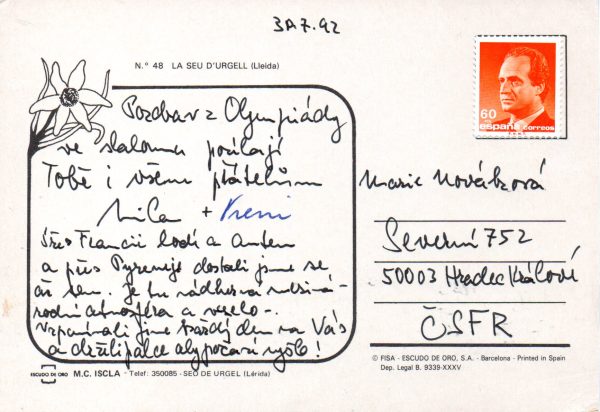 3A7.92
N.º 48 LA SEU D'URGELL (Lleida)
60
españa correos
Pozdrav z Olympiády
ve slalomu posílají
Tobě i všem přátelům
Míla + Vreni
Přes Francii lodí a autem
a přes Pyreneje dostali jsme se
až sem. Je tu nádherná meziná-
rodní atmosféra a veselo -.
Vzpomínali jsme každý den na Vás
a drželi palce aby počasí vyšlo!
Marie Nováková
Severní 752
50003 Hradec Králové
ČSFR
© FISA - ESCUDO DE ORO, S.A. - Barcelona - Printed in Spain
Dep. Legal B. 9339-XXXV
ESCUDO DE ORO M.C. ISCLA - Telef: 350085 - SEO DE URGEL (Lérida)